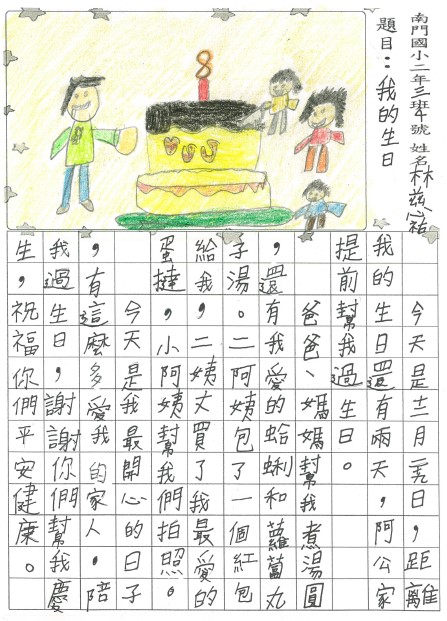 南門國小二年三班4號 姓名林
題目：我的生日
8
今天是十二月二九日，距離
我的生日還有兩天，阿公家
提前幫我過生日。
爸爸、媽媽幫我煮湯圓
，還有我愛的蛤蜊和蘿蔔丸
子湯。二阿姨包了一個紅包
給我，二姨丈買了我最愛的
蛋撻，小阿姨幫我們拍照。
今天是我最開心的日子
，有這麼多愛我的家人，陪
我過生日，謝謝你們幫我慶
生，祝福你們平安健康。